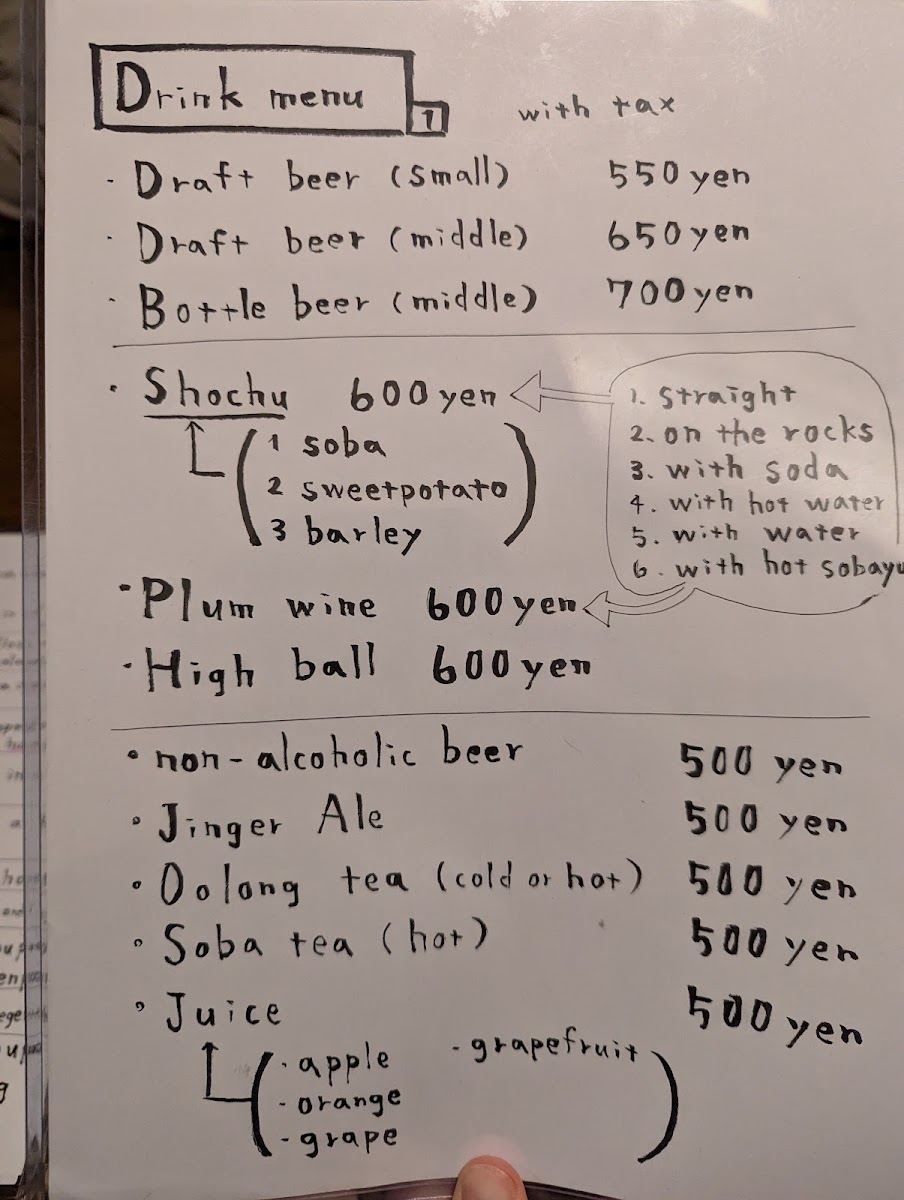 Drink menu 1 with tax
· Draft beer (small) 550 yen
· Draft beer (middle) 650 yen
· Bottle beer (middle) 700 yen
· Shochu 600 yen
1 soba
2 sweetpotato
3 barley
1. straight
2. on the rocks
3. with soda
4. with hot water
5. with water
6. with hot sobayu
· Plum wine 600 yen
· High ball 600 yen
· non-alcoholic beer 500 yen
· Jinger Ale 500 yen
· Oolong tea (cold or hot) 500 yen
· Soba tea (hot) 500 yen
· Juice 500 yen
· apple - grapefruit
- orange
- grape